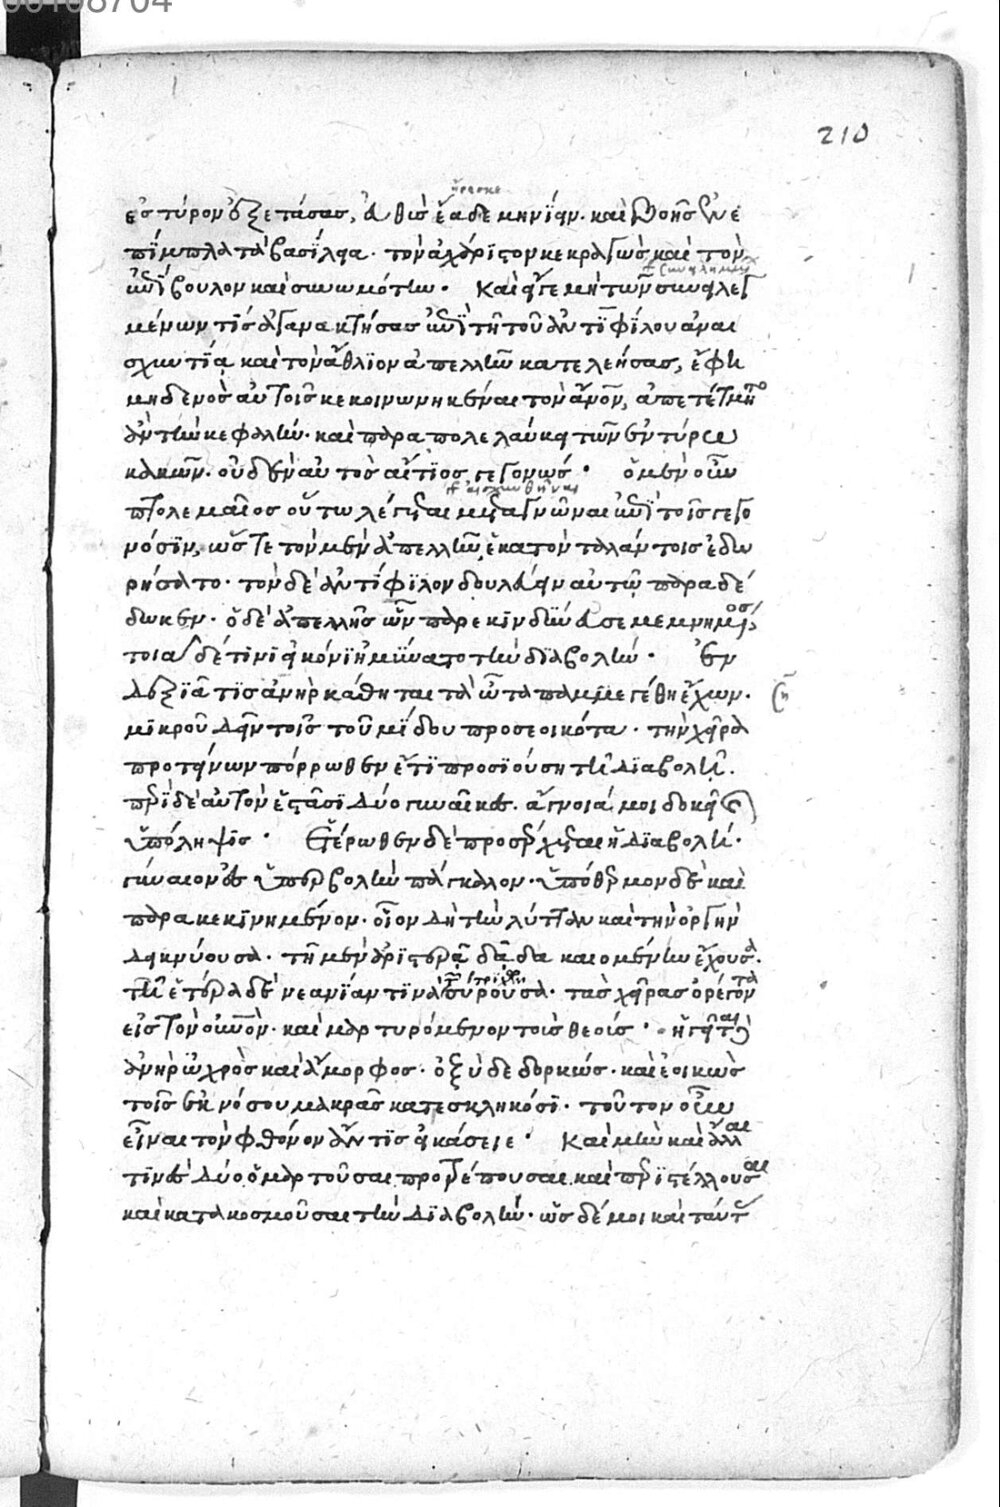 210
ἤρεσκε
ἐς τύρον ἐξετάσας, εὐθὺς ἕαδε μηνίειν. καὶ βοῆς ἐνε
πίμπλα τὰ βασίλεια. τὸν ἀχάριστον κεκραγὼς καὶ τὸν
ἐπίβουλον καὶ συνωμότην. Καὶ εἴ γε μὴ τῶν συνειλεγ
μένων τὶς ἀγανακτήσας ἐπὶ τῆ τοῦ ἀντιφίλου ἀναι
σχυντία καὶ τὸν ἄθλιον ἀπελλῆν κατελεήσας, ἔφη
μηδενὸς αὐτοῖς κεκοινωνηκέναι τὸν ἄνον, ἀπετέτμητο
ἂν τὴν κεφαλήν. καὶ παραπολελαύκει τῶν ἐν τύρω
κακῶν. οὐδὲν αὐτὸς αἴτιος γεγονώς. ὁ μὲν οὖν
αἰσχυνθῆναι
πτολεμαῖος οὕτω λέγεται μεταγνῶναι ἐπὶ τοῖς γεγο
νόσιν, ὥστε τὸν μὲν ἀπελλῆν ἑκατὸν ταλάντοις ἐδω
ρήσατο. τὸν δὲ ἀντίφιλον δουλεύειν αὐτῶ παραδέ
δωκεν. ὁ δὲ ἀπελλῆς ὧν παρεκινδύνευσε μεμνημένος,
τοιᾷδέ τινι εἰκόνι ἠμύνατο τὴν διαβολήν. Ἐν
δεξιᾶ τις ἀνὴρ κάθηται τὰ ὦτα παμμεγέθη ἔχων.
μικροῦ δεῖν τοῖς τοῦ μίδου προσεοικότα. τὴν χεῖρα
προτείνων πόρρωθεν ἔτι προσιούση τῆ διαβολῆ.
περὶ δὲ αὐτὸν ἑστᾶσι δύο γυναῖκες. ἄγνοιά μοι δοκεῖ καὶ
ὑπόληψις. Ἑτέρωθεν δὲ προσέρχεται ἡ διαβολή.
γύναιον ἐς ὑπερβολὴν πάγκαλον. ὑπόθερμον δὲ καὶ
παρακεκινημένον. οἷον δὴ τὴν λύτταν καὶ τὴν ὀργὴν
δεικνύουσα. τῆ μὲν ἀριστερᾶ δᾶδα καιομένην ἔχουσα.
τῆ ἑτέρα δὲ νεανίαν τινὰ τῶν τριχῶν σύρουσα. τὰς χεῖρας ὀρέγοντα
εἰς τὸν οὐνὸν. καὶ μαρτυρόμενον τοὺς θεούς. ἡγεῖται δὲ
ἀνὴρ ὠχρὸς καὶ ἄμορφος. ὀξὺ δεδορκώς. καὶ ἐοικὼς
τοῖς ἐκ νόσου μακρᾶς κατεσκληκόσι. τοῦτον οὖν
εἶναι τὸν φθόνον ἄν τις εἰκάσειε. Καὶ μὴν καὶ ἄλλαι
τινὲς δύο ὁμαρτοῦσαι προτρέπουσαι καὶ περιστέλλουσαι
καὶ κατακοσμοῦσαι τὴν διαβολήν. ὡς δέ μοι καὶ ταύτας